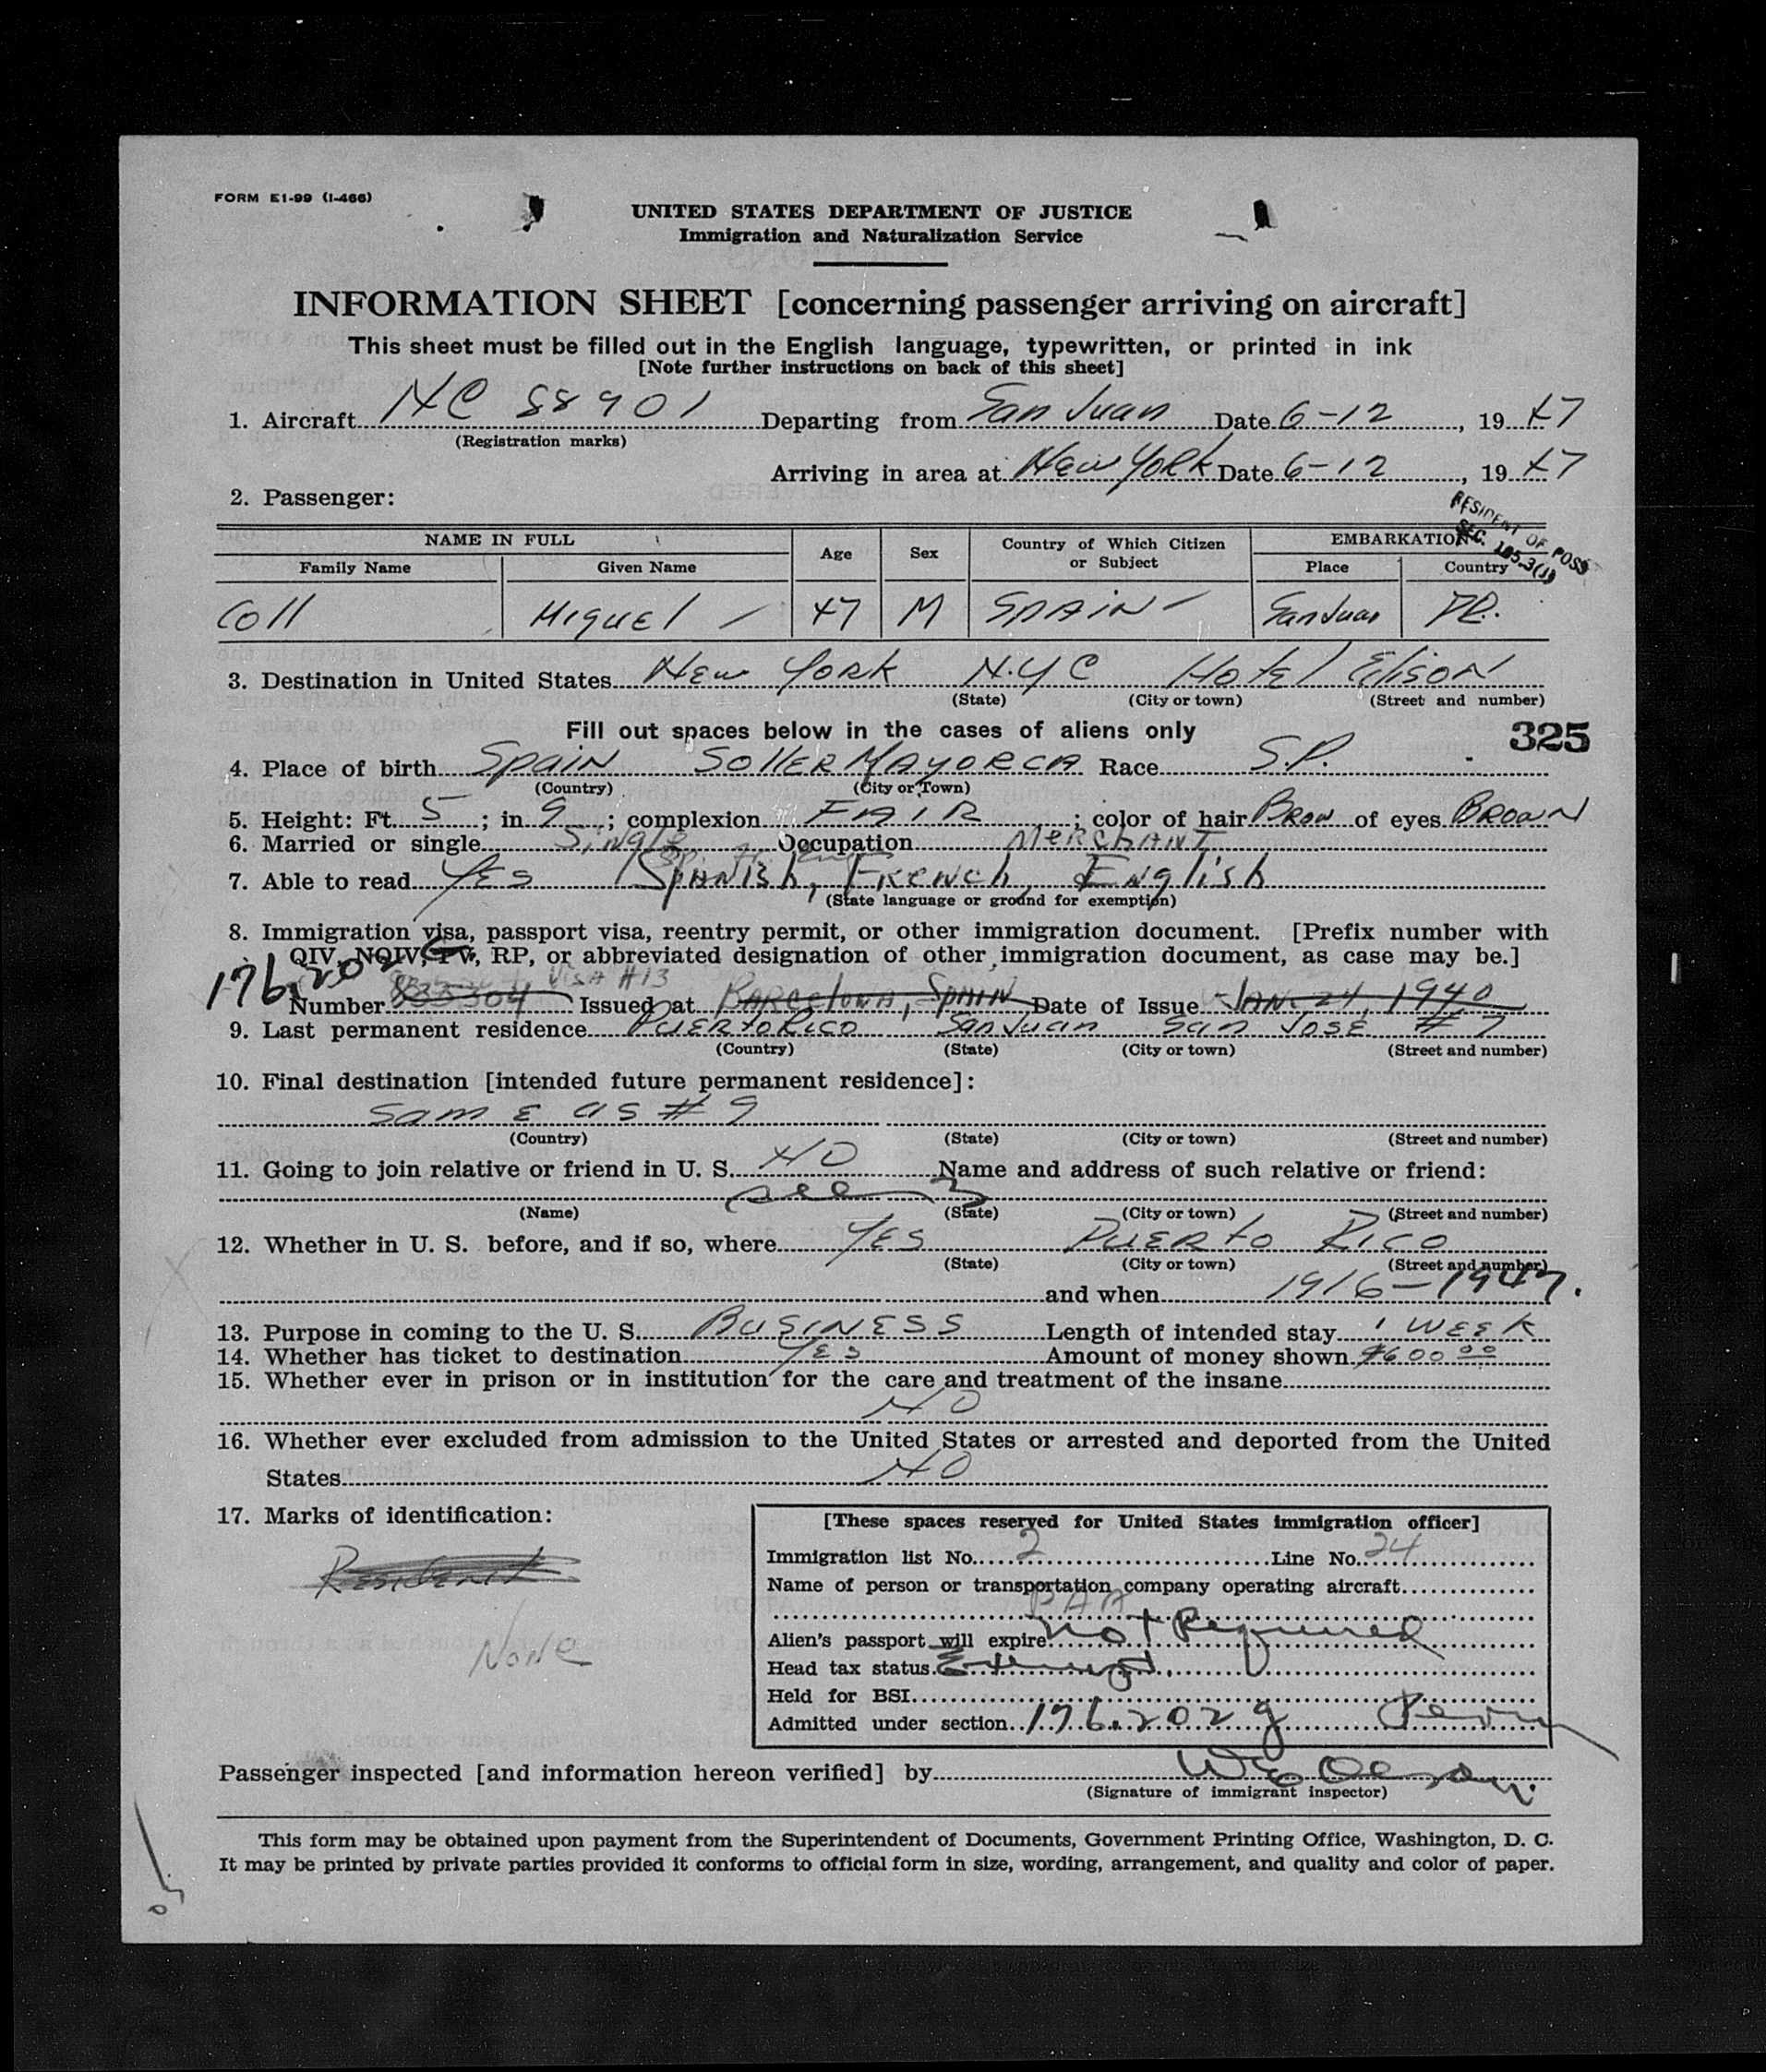 FORM E1-99 (I-466)
UNITED STATES DEPARTMENT OF JUSTICE
Immigration and Naturalization Service
INFORMATION SHEET [concerning passenger arriving on aircraft]
This sheet must be filled out in the English language, typewritten, or printed in ink
[Note further instructions on back of this sheet]
1. Aircraft NC 88901 Departing from San Juan Date 6-12, 1947
(Registration marks)
Arriving in area at New York Date 6-12, 1947
2. Passenger:
RESIDENT OF POSS
SEC. 105.3(J)
NAME IN FULL Age Sex Country of Which Citizen or Subject EMBARKATION
Family Name Given Name Place Country
Coll Miguel 47 M SPAIN San Juan P.R.
3. Destination in United States New York N.Y.C Hotel Edison
(State) (City or town) (Street and number)
Fill out spaces below in the cases of aliens only 325
4. Place of birth Spain Soller Mayorca Race S.P.
(Country) (City or Town)
5. Height: Ft. 5; in 9; complexion FAIR; color of hair Brow of eyes Brown
6. Married or single Single Occupation MERCHANT
7. Able to read Yes Spanish, French, English
(State language or ground for exemption)
8. Immigration visa, passport visa, reentry permit, or other immigration document. [Prefix number with
QIV, NQIV, PV, RP, or abbreviated designation of other immigration document, as case may be.]
176.202 G Visa #13
Number 833304 Issued at Barcelona, Spain Date of Issue Jan. 24, 1940
9. Last permanent residence Puerto Rico San Juan San Jose #7
(Country) (State) (City or town) (Street and number)
10. Final destination [intended future permanent residence]:
Same as #9
(Country) (State) (City or town) (Street and number)
11. Going to join relative or friend in U. S. NO Name and address of such relative or friend:
see 3
(Name) (State) (City or town) (Street and number)
12. Whether in U. S. before, and if so, where Yes Puerto Rico
(State) (City or town) (Street and number)
and when 1916-1947.
13. Purpose in coming to the U. S. BUSINESS Length of intended stay 1 WEEK
14. Whether has ticket to destination Yes Amount of money shown $600 00
15. Whether ever in prison or in institution for the care and treatment of the insane
NO
16. Whether ever excluded from admission to the United States or arrested and deported from the United
States NO
17. Marks of identification:
Resident
None
[These spaces reserved for United States immigration officer]
Immigration list No. 2 Line No. 24
Name of person or transportation company operating aircraft
PAA
Alien's passport will expire Not Required
Head tax status Exempt
Held for BSI
Admitted under section 176.202 g
Passenger inspected [and information hereon verified] by W E Olson
(Signature of immigrant inspector)
This form may be obtained upon payment from the Superintendent of Documents, Government Printing Office, Washington, D. C.
It may be printed by private parties provided it conforms to official form in size, wording, arrangement, and quality and color of paper.